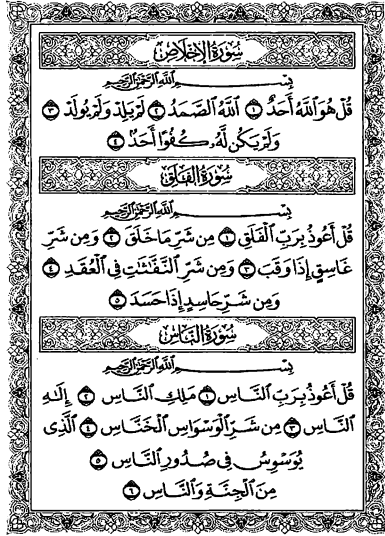 سُورَةُ الإِخْلَاصِ
بِسْمِ اللَّهِ الرَّحْمَٰنِ الرَّحِيمِ
قُلْ هُوَ اللَّهُ أَحَدٌ ۝١ اللَّهُ الصَّمَدُ ۝٢ لَمْ يَلِدْ وَلَمْ يُولَدْ ۝٣
وَلَمْ يَكُن لَّهُۥ كُفُوًا أَحَدٌ ۝٤
سُورَةُ الْفَلَقِ
بِسْمِ اللَّهِ الرَّحْمَٰنِ الرَّحِيمِ
قُلْ أَعُوذُ بِرَبِّ الْفَلَقِ ۝١ مِن شَرِّ مَا خَلَقَ ۝٢ وَمِن شَرِّ
غَاسِقٍ إِذَا وَقَبَ ۝٣ وَمِن شَرِّ النَّفَّٰثَٰتِ فِي الْعُقَدِ ۝٤
وَمِن شَرِّ حَاسِدٍ إِذَا حَسَدَ ۝٥
سُورَةُ النَّاسِ
بِسْمِ اللَّهِ الرَّحْمَٰنِ الرَّحِيمِ
قُلْ أَعُوذُ بِرَبِّ النَّاسِ ۝١ مَلِكِ النَّاسِ ۝٢ إِلَٰهِ
النَّاسِ ۝٣ مِن شَرِّ الْوَسْوَاسِ الْخَنَّاسِ ۝٤ الَّذِي
يُوَسْوِسُ فِي صُدُورِ النَّاسِ ۝٥
مِنَ الْجِنَّةِ وَالنَّاسِ ۝٦